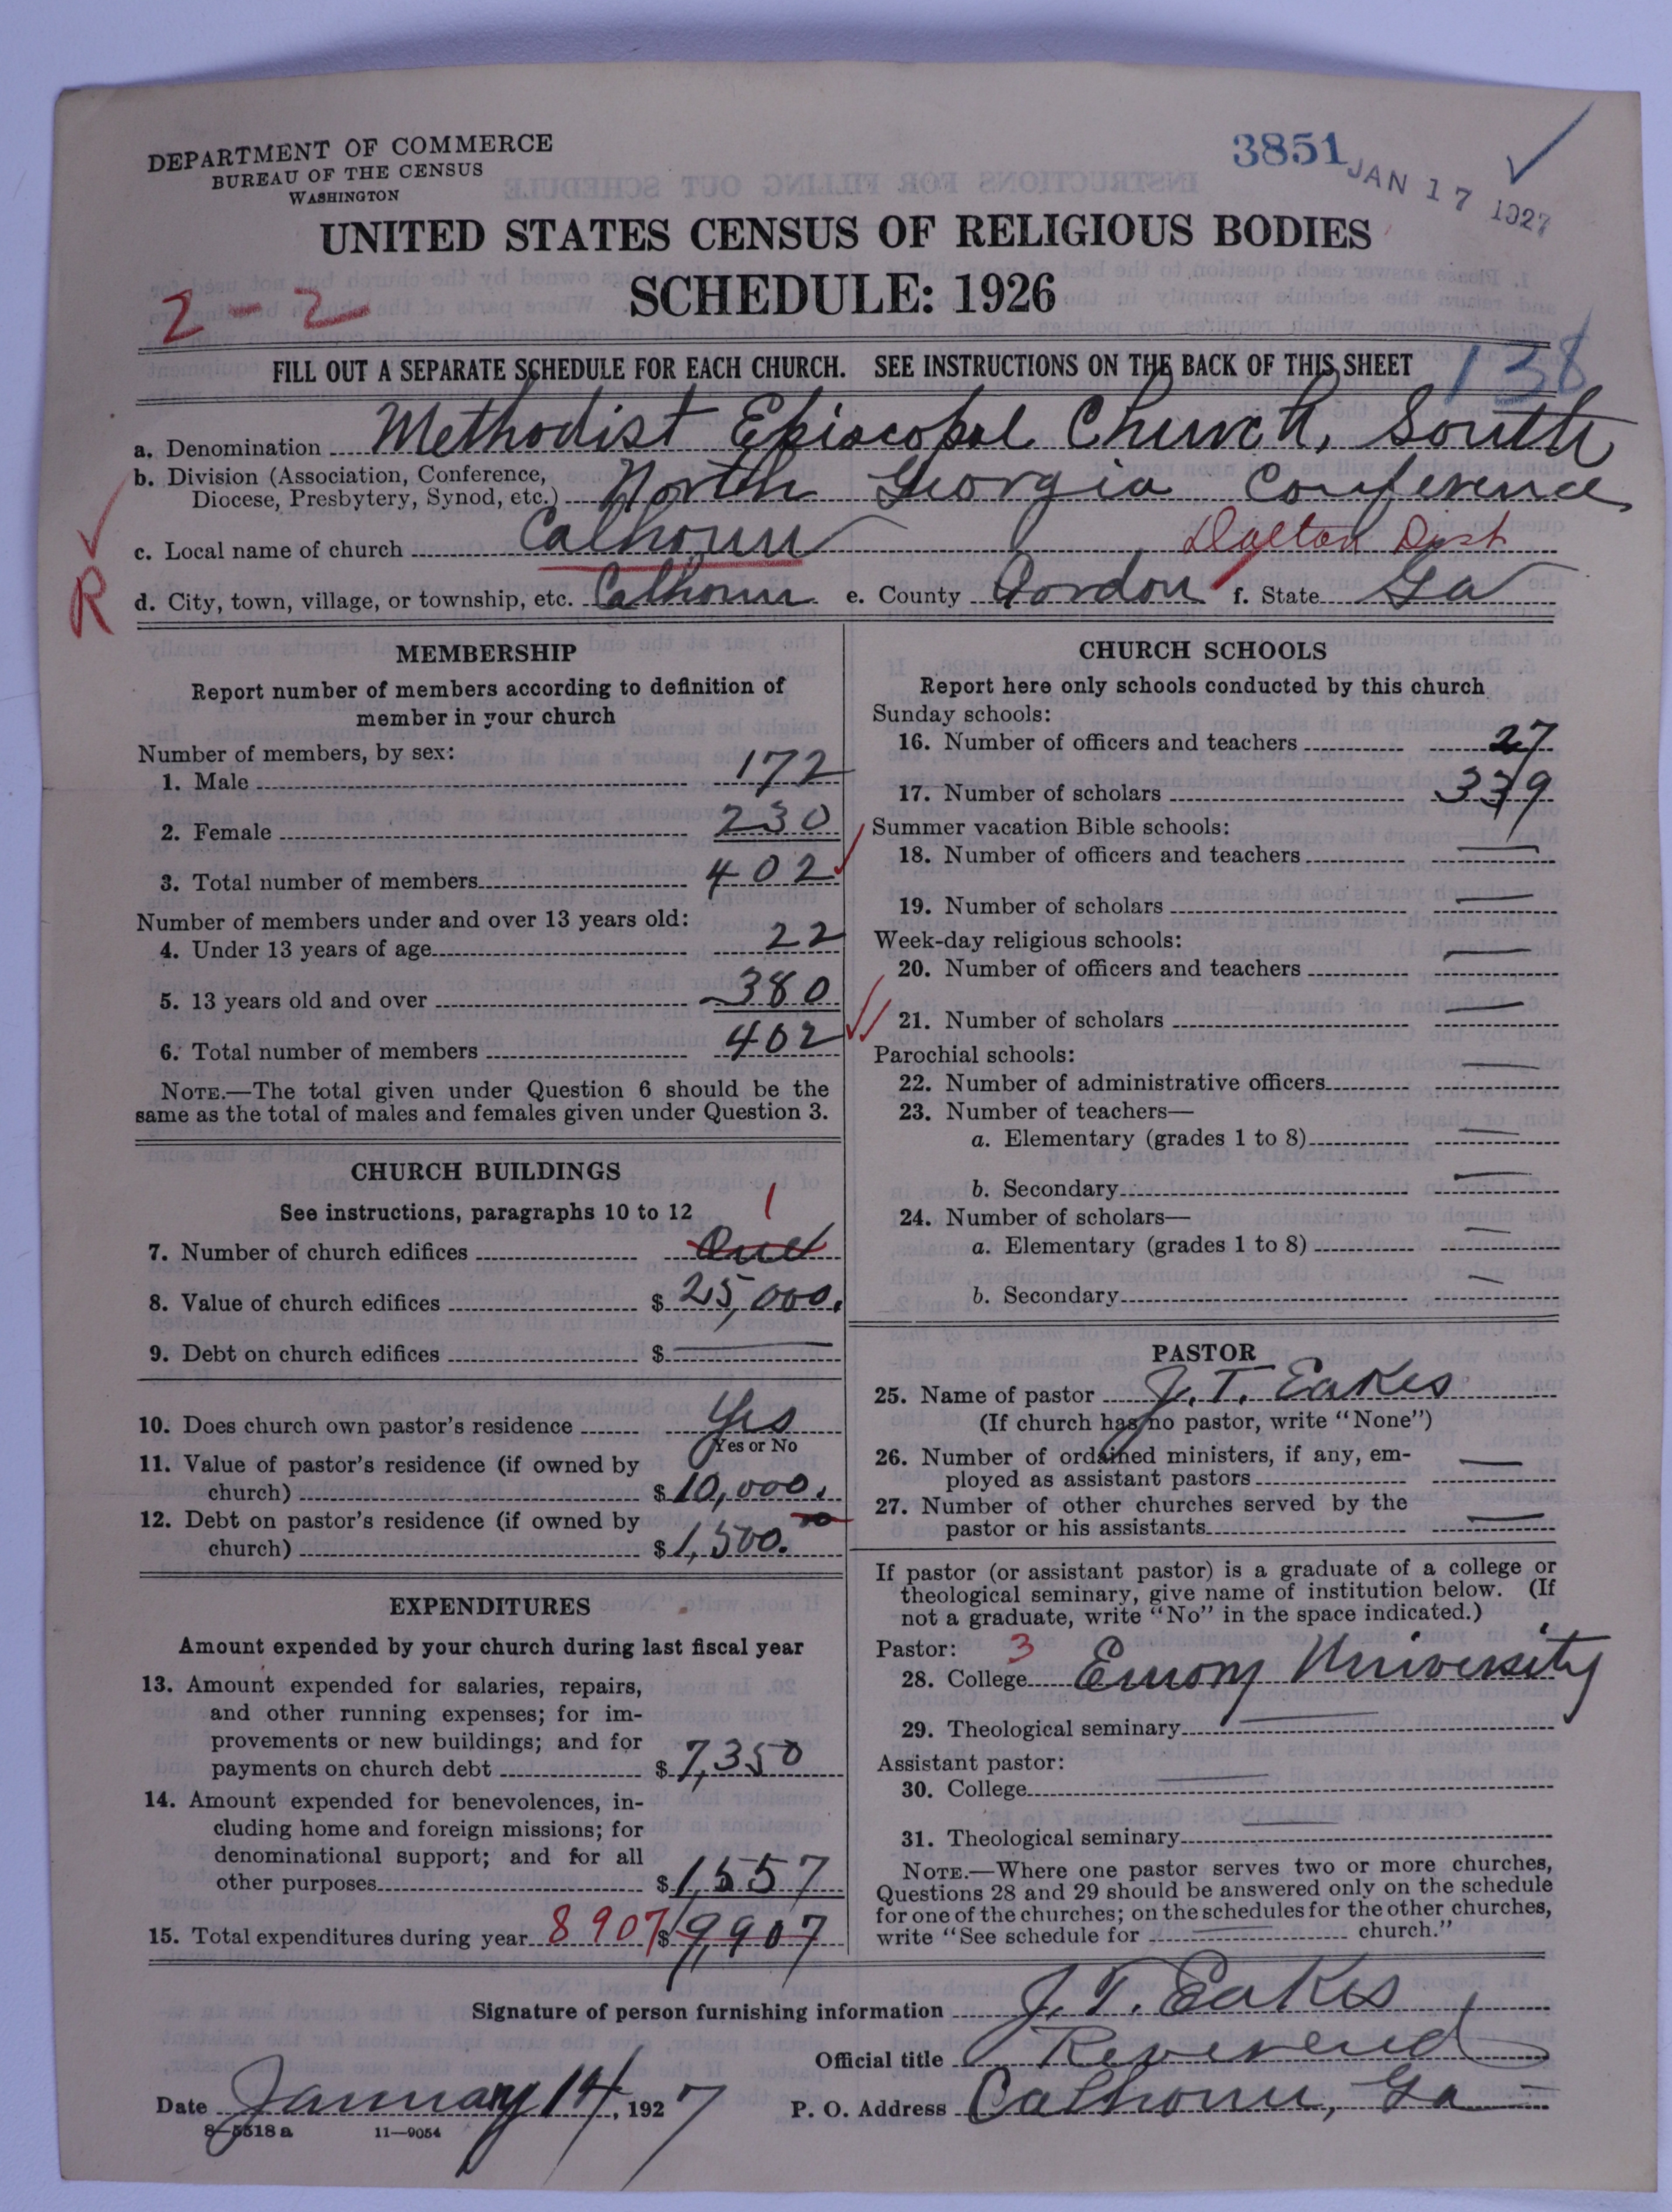 DEPARTMENT OF COMMERCE
BUREAU OF THE CENSUS
WASHINGTON
3851
JAN 17 1927
UNITED STATES CENSUS OF RELIGIOUS BODIES
SCHEDULE: 1926
2-2
FILL OUT A SEPARATE SCHEDULE FOR EACH CHURCH. SEE INSTRUCTIONS ON THE BACK OF THIS SHEET
138
a. Denomination Methodist Episcopal Church, South
b. Division (Association, Conference,
Diocese, Presbytery, Synod, etc.) North Georgia Conference
c. Local name of church Calhoun Dalton Dist
R
d. City, town, village, or township, etc. Calhoun e. County Gordon f. State Ga
MEMBERSHIP
Report number of members according to definition of
member in your church
Number of members, by sex:
1. Male 172
2. Female 230
3. Total number of members 402
Number of members under and over 13 years old:
4. Under 13 years of age 22
5. 13 years old and over 380
6. Total number of members 402
NOTE.—The total given under Question 6 should be the
same as the total of males and females given under Question 3.
CHURCH BUILDINGS
See instructions, paragraphs 10 to 12
1
7. Number of church edifices One
8. Value of church edifices $ 25,000.
9. Debt on church edifices $
10. Does church own pastor's residence Yes
Yes or No
11. Value of pastor's residence (if owned by
church) $ 10,000.
12. Debt on pastor's residence (if owned by
church) $ 1,500.00
EXPENDITURES
Amount expended by your church during last fiscal year
13. Amount expended for salaries, repairs,
and other running expenses; for im-
provements or new buildings; and for
payments on church debt $ 7,350
14. Amount expended for benevolences, in-
cluding home and foreign missions; for
denominational support; and for all
other purposes $ 1,557
15. Total expenditures during year 8907 $ 9,907
CHURCH SCHOOLS
Report here only schools conducted by this church
Sunday schools:
16. Number of officers and teachers 27
17. Number of scholars 339
Summer vacation Bible schools:
18. Number of officers and teachers
19. Number of scholars
Week-day religious schools:
20. Number of officers and teachers
21. Number of scholars
Parochial schools:
22. Number of administrative officers
23. Number of teachers—
a. Elementary (grades 1 to 8)
b. Secondary
24. Number of scholars—
a. Elementary (grades 1 to 8)
b. Secondary
PASTOR
25. Name of pastor J. T. Eakes
(If church has no pastor, write "None")
26. Number of ordained ministers, if any, em-
ployed as assistant pastors
27. Number of other churches served by the
pastor or his assistants
If pastor (or assistant pastor) is a graduate of a college or
theological seminary, give name of institution below. (If
not a graduate, write "No" in the space indicated.)
Pastor: 3
28. College Emory University
29. Theological seminary
Assistant pastor:
30. College
31. Theological seminary
NOTE.—Where one pastor serves two or more churches,
Questions 28 and 29 should be answered only on the schedule
for one of the churches; on the schedules for the other churches,
write "See schedule for church."
Signature of person furnishing information J. T. Eakes
Official title Reverend
Date January 14, 1927 P. O. Address Calhoun, Ga
8-5518a 11-9054